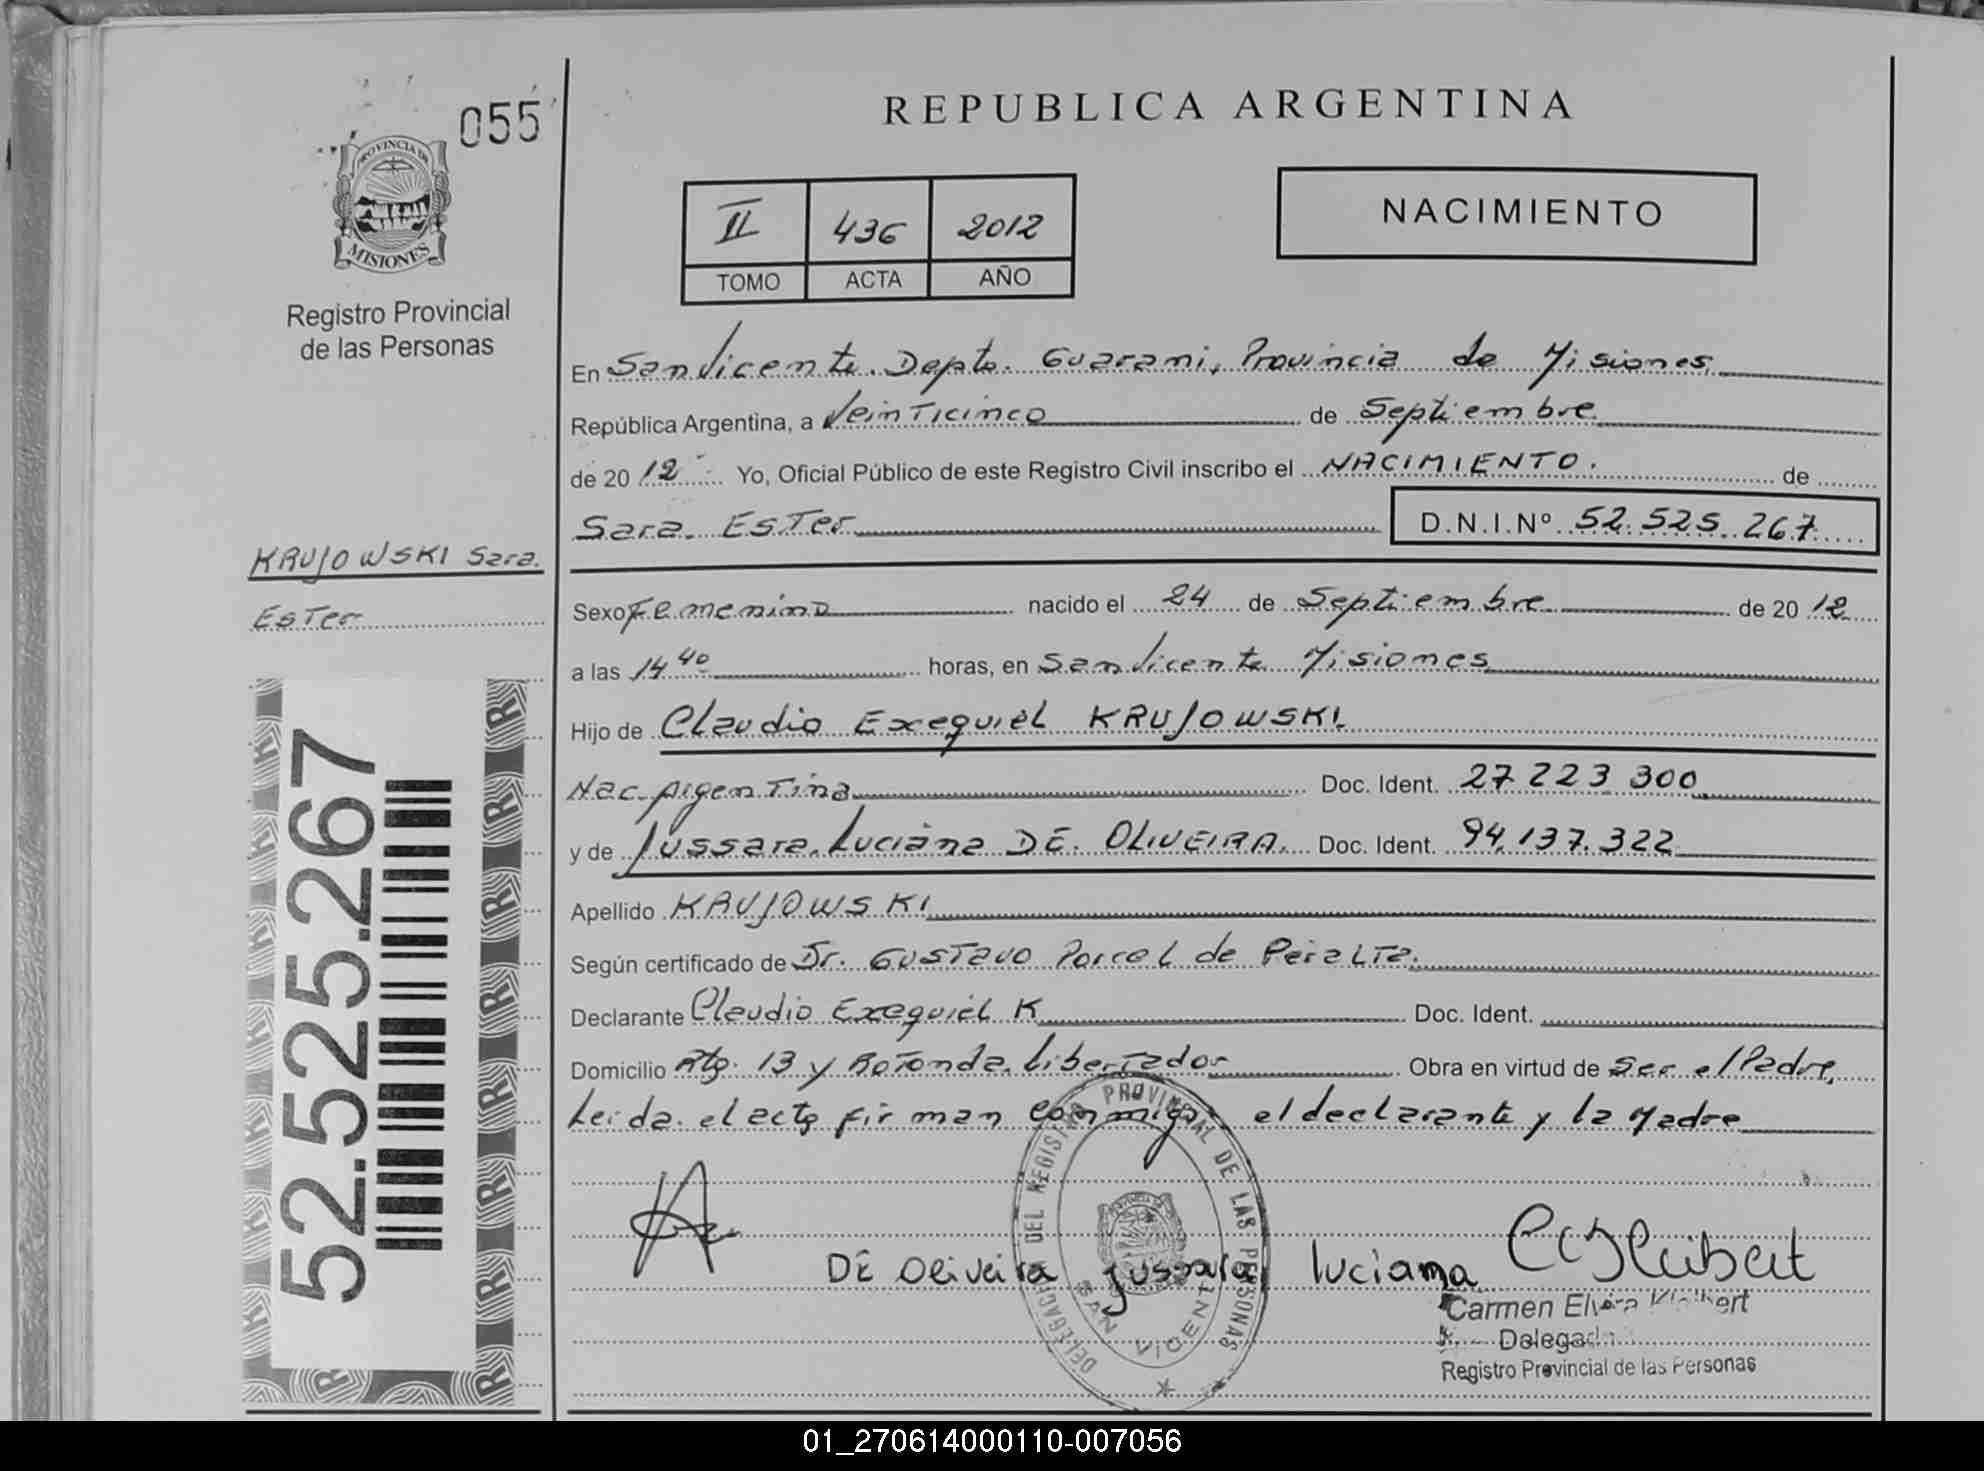 055
PROVINCIA DE
MISIONES
Registro Provincial
de las Personas
KRUJOWSKI Sara
Ester
52.525.267
REPUBLICA ARGENTINA
II 436 2012
TOMO ACTA AÑO
NACIMIENTO
En San Vicente. Depto. Guarami, Provincia de Misiones
República Argentina, a Veinticinco de Septiembre
de 2012 Yo, Oficial Público de este Registro Civil inscribo el NACIMIENTO. de
Sara Ester D.N.I.Nº 52.525.267
Sexo Femenino nacido el 24 de Septiembre de 2012
a las 14 40 horas, en San Vicente Misiones
Hijo de Claudio Exequiel KRUJOWSKI
Nac. Argentina Doc. Ident. 27 223 300
y de Jussara Luciana DE OLIVEIRA Doc. Ident. 94.137.322
Apellido KRUJOWSKI
Según certificado de Dr. Gustavo Porcel de Peralta.
Declarante Claudio Exequiel K Doc. Ident.
Domicilio Rta. 13 y Rotonda Libertador Obra en virtud de Ser el Padre,
Leida el acta firman conmigo el declarante y la Madre
DE Oliveira Jussara Luciana
DELEGACION DEL REGISTRO PROVINCIAL DE LAS PERSONAS
SAN VICENTE
Carmen Elvira
Delegada
Registro Provincial de las Personas
01_270614000110-007056